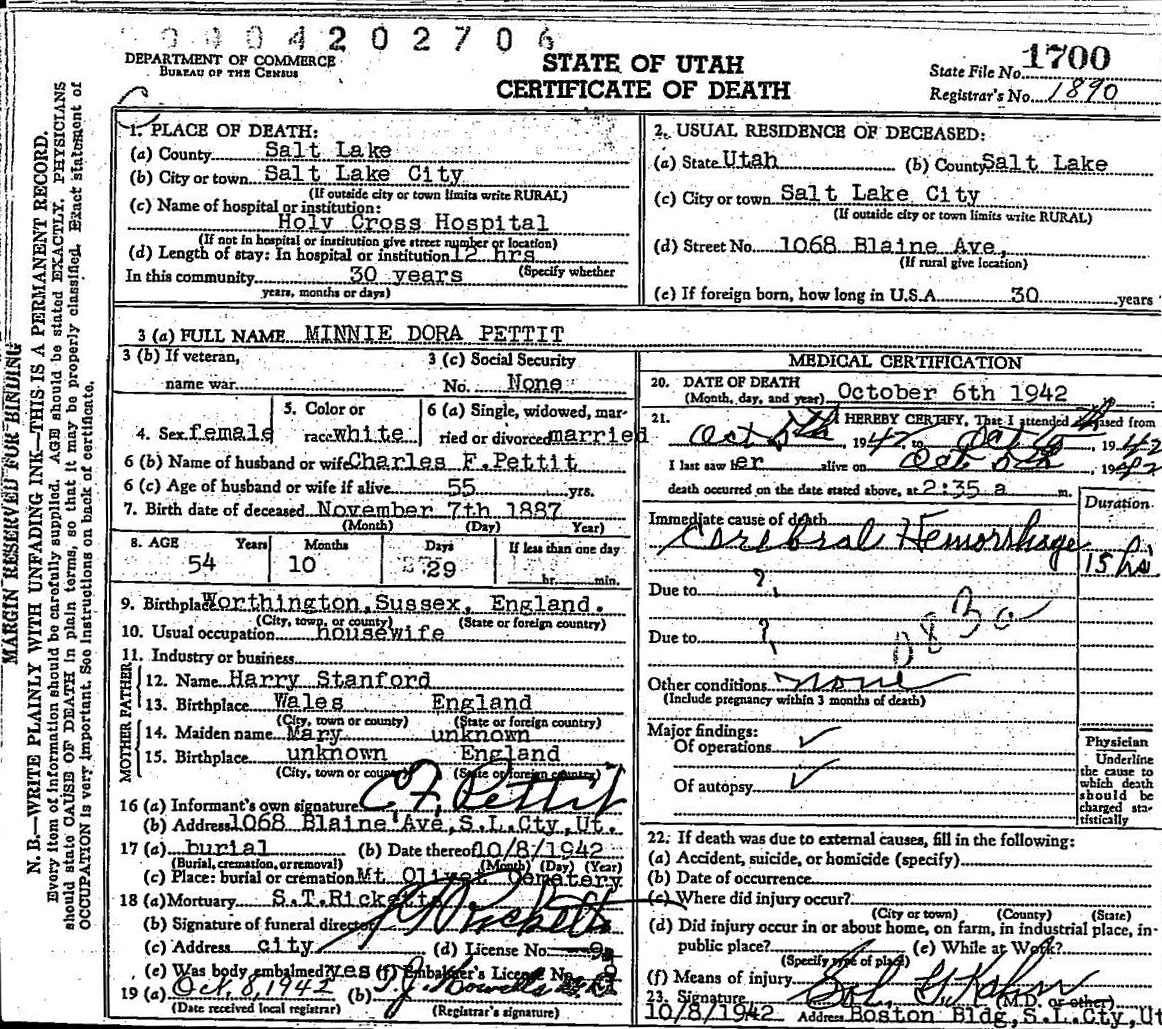 0004202706
DEPARTMENT OF COMMERCE
BUREAU OF THE CENSUS
STATE OF UTAH
CERTIFICATE OF DEATH
State File No. 1700
Registrar's No. 1890
MARGIN RESERVED FOR BINDING
N. B.—WRITE PLAINLY WITH UNFADING INK—THIS IS A PERMANENT RECORD.
Every item of information should be carefully supplied. AGE should be stated EXACTLY. PHYSICIANS
should state CAUSE OF DEATH in plain terms, so that it may be properly classified. Exact statement of
OCCUPATION is very important. See instructions on back of certificate.
1. PLACE OF DEATH:
(a) County Salt Lake
(b) City or town Salt Lake City
(If outside city or town limits write RURAL)
(c) Name of hospital or institution:
Holy Cross Hospital
(If not in hospital or institution give street number or location)
(d) Length of stay: In hospital or institution 12 hrs
(Specify whether
In this community 30 years
years, months or days)
2. USUAL RESIDENCE OF DECEASED:
(a) State Utah (b) County Salt Lake
(c) City or town Salt Lake City
(If outside city or town limits write RURAL)
(d) Street No. 1068 Blaine Ave,
(If rural give location)
(e) If foreign born, how long in U.S.A. 30 years
3 (a) FULL NAME MINNIE DORA PETTIT
3 (b) If veteran, 3 (c) Social Security
name war No. None
4. Sex female 5. Color or race white 6 (a) Single, widowed, married or divorced married
6 (b) Name of husband or wife Charles F.Pettit
6 (c) Age of husband or wife if alive 55 yrs.
7. Birth date of deceased November 7th 1887
(Month) (Day) Year)
8. AGE Years Months Days If less than one day
54 10 29 hr. min.
9. Birthplace Worthington,Sussex, England.
(City, town, or county) (State or foreign country)
10. Usual occupation housewife
11. Industry or business
FATHER
12. Name Harry Stanford
13. Birthplace Wales England
(City, town or county) (State or foreign country)
MOTHER
14. Maiden name Mary unknown
15. Birthplace unknown England
(City, town or county) (State or foreign country)
16 (a) Informant's own signature C F, Pettit
(b) Address 1068 Blaine Ave,S.L.Cty,Ut.
17 (a) burial (b) Date thereof 10/8/1942
(Burial, cremation, or removal) (Month) (Day) (Year)
(c) Place: burial or cremation Mt. Olivet Cemetery
18 (a) Mortuary S.T.Ricketts
(b) Signature of funeral director Ricketts
(c) Address city (d) License No. 9
(e) Was body embalmed? yes (f) Embalmer's License No.
19 (a) Oct, 8, 1942 (b) T. J. Howells
(Date received local registrar) (Registrar's signature)
MEDICAL CERTIFICATION
20. DATE OF DEATH
(Month, day, and year) October 6th 1942
21. I HEREBY CERTIFY, That I attended deceased from
Oct 5th 1942 to Oct 6 1942
I last saw her alive on Oct 5th 1942
death occurred on the date stated above, at 2:35 a m.
Duration
Immediate cause of death
Cerebral Hemorrhage 15 hs
Due to ?
Due to ?
0830
Other conditions none
(Include pregnancy within 3 months of death)
Major findings:
Of operations ✓
Of autopsy ✓
Physician
Underline
the cause to
which death
should be
charged sta-
tistically
22. If death was due to external causes, fill in the following:
(a) Accident, suicide, or homicide (specify)
(b) Date of occurrence
(c) Where did injury occur?
(City or town) (County) (State)
(d) Did injury occur in or about home, on farm, in industrial place, in-
public place? (e) While at Work?
(Specify type of place)
(f) Means of injury
23. Signature Sol G. Kahn (M.D. or other)
10/8/1942 Address Boston Bldg,S.L.Cty,Ut